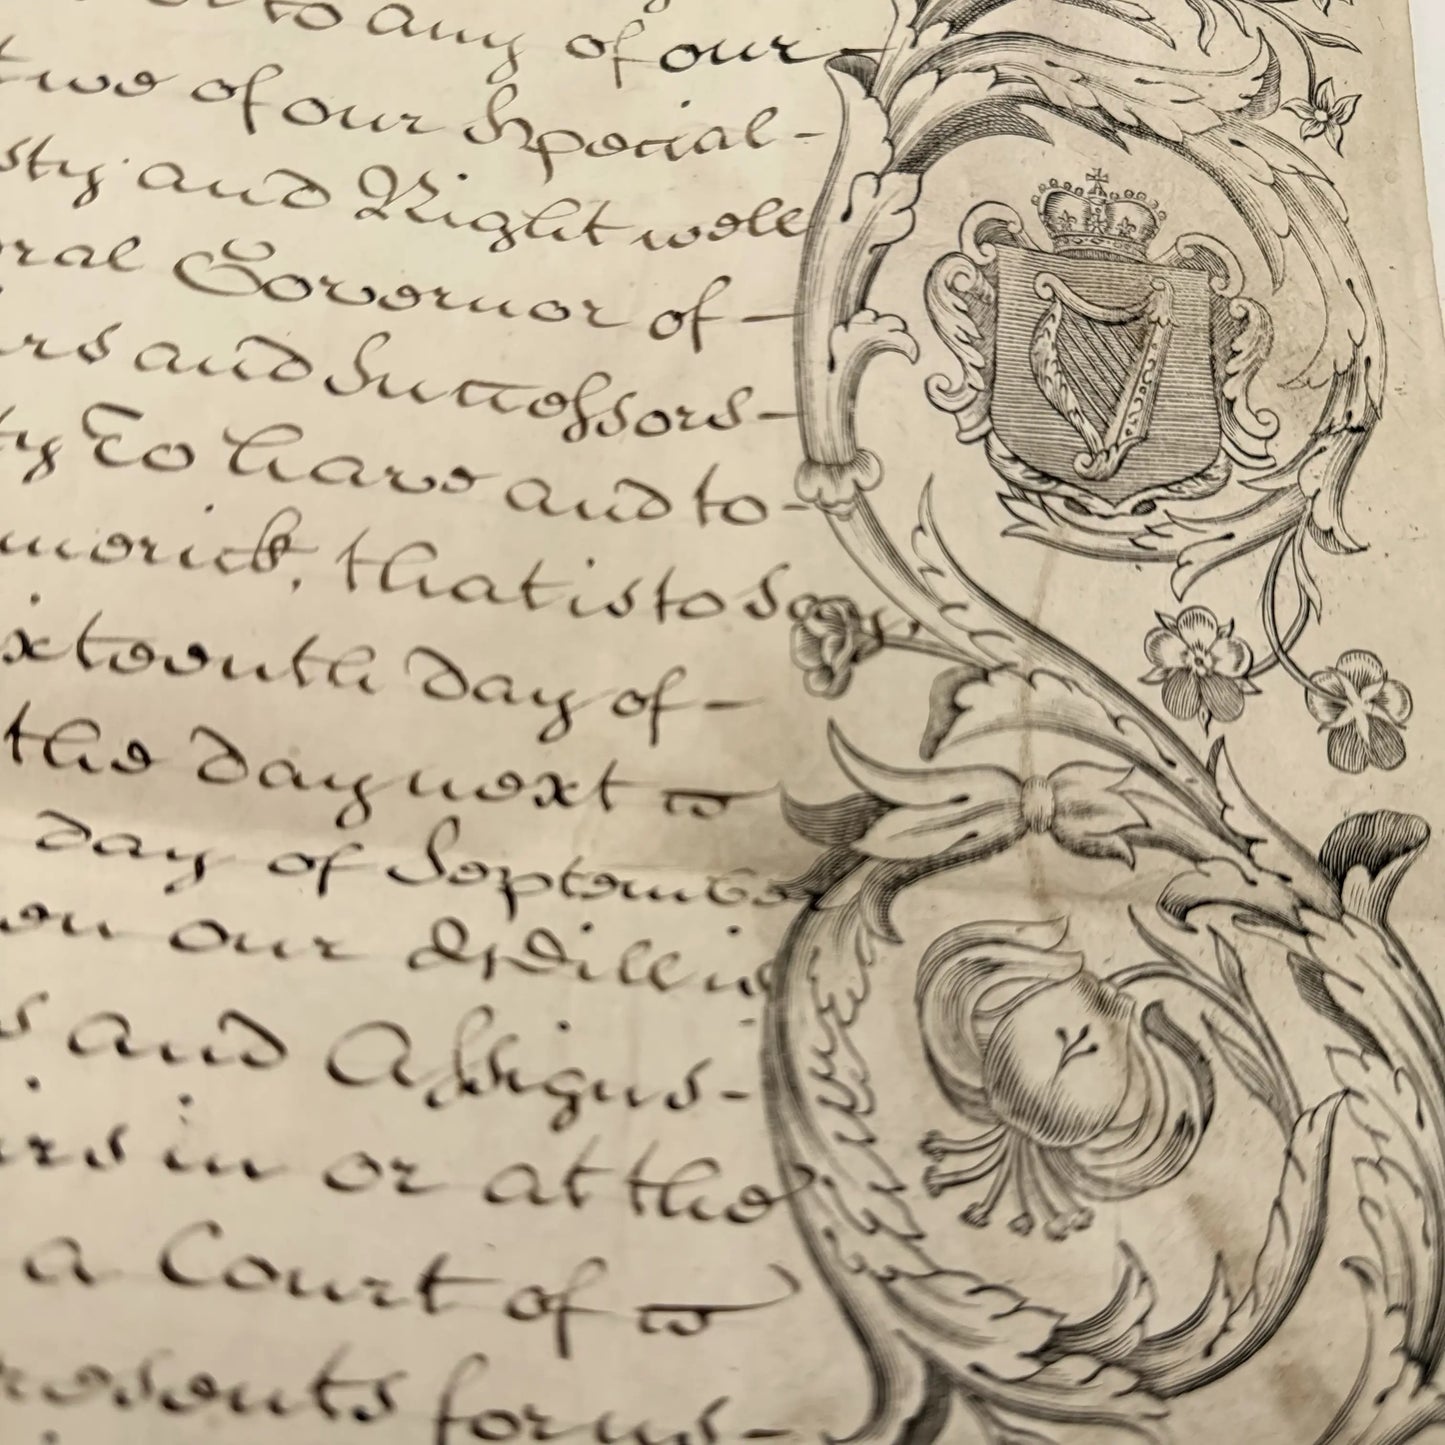 to any of our
two of our Special-
sty and Right well
ral Governor of-
rs and Successors-
ty To have and to-
merick, that is to say,
xteenth day of-
the day next
day of September
on our Will is
s and Assigns-
irs in or at the
a Court of
resents for us-